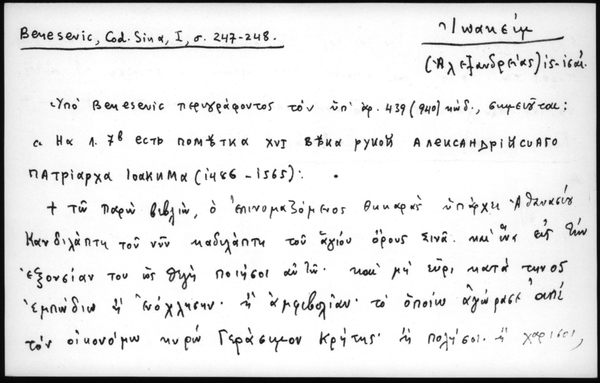 Benesevic, Cod. Sina, I, σ. 247-248.
Ἰωακείμ
(Ἀλεξανδρείας) ις-ισαι.
Ὑπὸ Benesevic περιγράφοντος τὸν ὑπ' ἀρ. 439 (940) κώδ., σημειοῦται:
На л. 7в есть помѣтка XVI вѣка рукой Александрійскаго
патріарха Іоакима (1486-1565):
+ τῶ παρῶ βιβλίω, ὁ ἐπινομαζόμενος θηκαρᾶς ὑπάρχει Ἀθανασίου
Κανδιλάπτη τοῦ νῦν καδιλάπτη τοῦ ἁγίου ὄρους Σινᾶ. καὶ ἂς εἰς τὴν
ἐξουσίαν του ὡς θέλη ποιήσοι αὐτῶ. καὶ μὴ εὕρι κατά τηνος
ἐμπώδιω ἢ ἐνόχλησην. ἢ ἀμφιβολίαν. τὸ ὁποίω ἀγώρασε ἀπὲ
τὸν οἰκονόμω κυρῶ Γεράσιμον Κρήτης. ἢ πολήσοι. ἢ χαρίσοι,